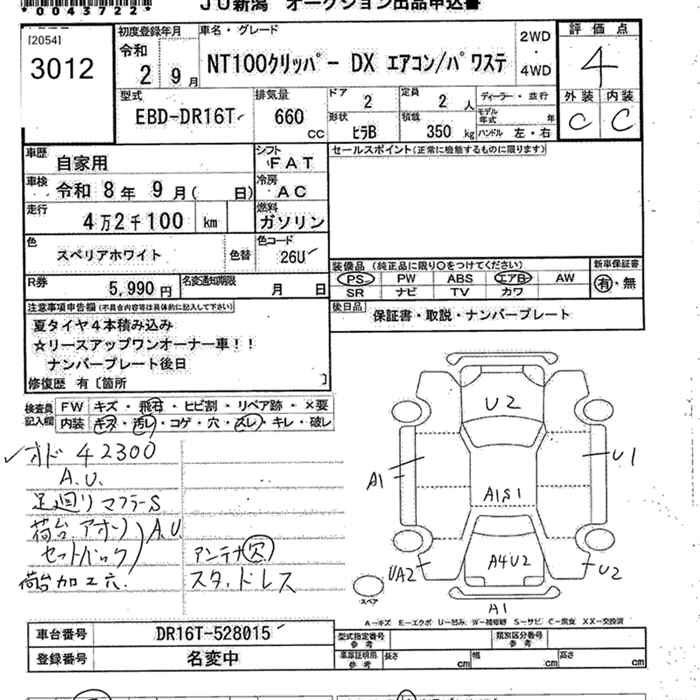 *0043722*
JU新潟 オークション出品申込書
[2054]
3012
初度登録年月
令和
2 9月
車名・グレード
NT100クリッパー DX エアコン/パワステ
2WD
・
4WD
評価点
4
外装 内装
C C
型式
EBD-DR16T
排気量
660
cc
ドア
2
形状
ヒラB
定員
2 人
積載
350 kg
ディーラー・並行
モデル年式 年
ハンドル 左・右
車歴
自家用
シフト
FAT
車検
令和 8年 9月( 日)
冷房
AC
走行
4万2千100 km
燃料
ガソリン
色
スペリアホワイト
色替
色コード
26U
R券
5,990円
名変通知期限
月 日
セールスポイント(正常に稼働するものに限ります)
装備品 (純正品に限り〇をつけてください)
PS PW ABS エアB AW
SR ナビ TV カワ
新車保証書
有・無
後日品
保証書・取説・ナンバープレート
注意事項申告欄(不具合内容等は具体的に記入して下さい)
夏タイヤ4本積み込み
☆リースアップワンオーナー車!!
ナンバープレート後日
修復歴 有〔箇所 〕
検査員記入欄
FW キズ・飛石・ヒビ割・リペア跡・×要
内装 キズ・汚レ・コゲ・穴・スレ・キレ・破レ
オド 42300
A.U.
足廻りマフラーS
荷台.アオリ)A.U
セットバック
荷台加工穴.
アンテナ欠
スタッドレス
U2
A1
U1
A1S1
UA2
A4U2
U2
A1
スペア
A-キズ E-エクボ U-凹み W-補修跡 S-サビ C-腐食 XX-交換済
車台番号
DR16T-528015
登録番号
名変中
型式指定番号
参考
類別区分番号
参考
車庫証明用
参考
長さ cm
幅 cm
高さ cm